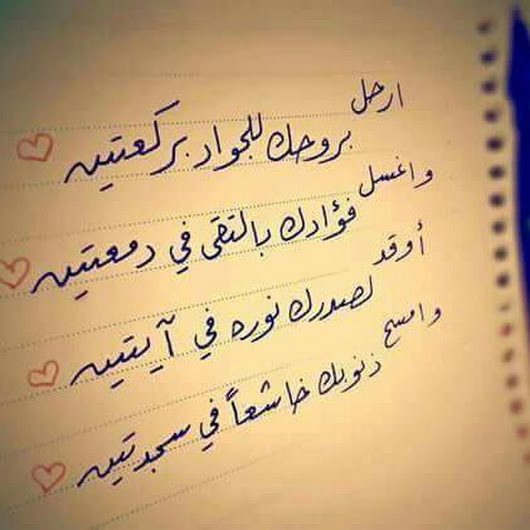 ارحل
بروحك للجواد بركعتين
واغسل
فؤادك بالتقى في دمعتين
أوقد
لصدرك نوره في آيتين
وامسح
ذنوبك خاشعاً في سجدتين